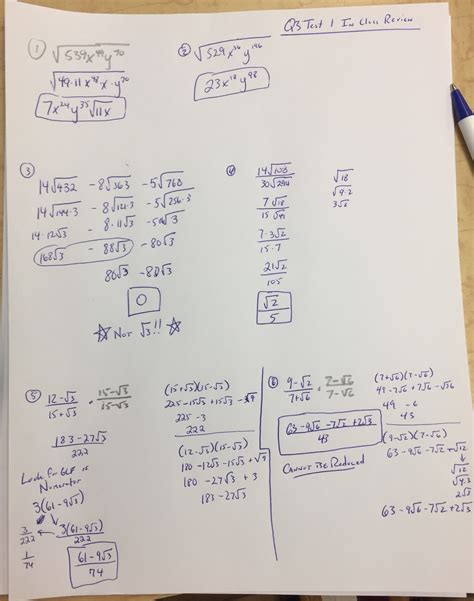 Q3 Test 1 In Class Review
① √539x⁴⁹y⁷⁰
√49·11x⁴⁸x·y⁷⁰
7x²⁴y³⁵√11x
② √529x³⁶y¹⁹⁶
23x¹⁸y⁹⁸
③
14√432 - 8√363 - 5√768
14√144·3 - 8√121·3 - 5√256·3
14·12√3 - 8·11√3
168√3 - 88√3 - 80√3
80√3 - 80√3
0
☆ Not √3!! ☆
④
14√108
30√294
7√18
15√49
7·3√2
15·7
21√2
105
√2
5
√18
√9·2
3√2
⑤ 12-√3 · 15-√3
15+√3 15-√3
183-27√3
222
Look for GCF in
Numerator
3(61-9√3)
3 ← 3(61-9√3)
222 222
1
74
61-9√3
74
(15+√3)(15-√3)
225-15√3+15√3-√9
225-3
222
(12-√3)(15-√3)
180-12√3-15√3+√9
180-27√3+3
183-27√3
⑥ 9-√2 · 7-√6
7+√6 7-√6
63-9√6-7√2+2√3
43
Cannot Be Reduced
(7+√6)(7-√6)
49-7√6+7√6-√36
49-6
43
(9-√2)(7-√6)
63-9√6-7√2+√12
√12
√4·3
2√3
63-9√6-7√2+2√3